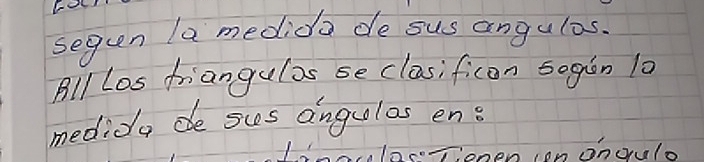 segun la medida de sus angulos.
R// Los triangulos se clasifican según la
medida de sus ángulos en:
Tienen un ángulo